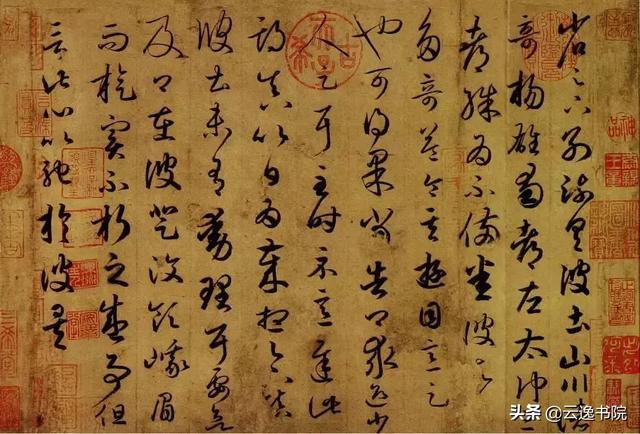 省足下別疏具彼土山川諸
奇揚雄蜀都左太沖三
都殊為不備悉彼故為
多奇益令其遊目意足
也可得果當告卿求迎少
人足耳至時示意遲此
期真以日為歲想足下鎮
彼土未有動理耳要欲
及卿在彼登汶領峨眉
而旋實不朽之盛事但
言此心以馳於彼矣
古希天子
神品
头条 @云逸书院